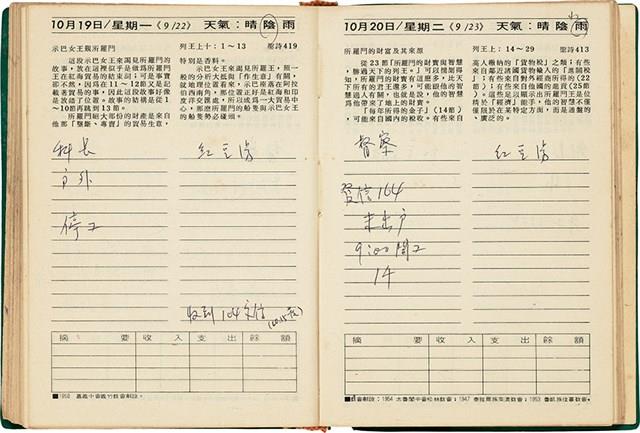 10月19日/星期一 (9/22) 天氣:晴陰雨
示巴女王覲所羅門
列王上十:1~13
聖詩419
這段示巴女王來謁見所羅門的
故事,放在這裡似乎是做爲所羅門
王在紅海貿易的結束詞;可是事實
卻不然,因爲在11~12節又是記
載著紅海貿易的事。因此該故事好像
是放錯了位置。故事的結構是從1
~10節再跳到13節。
所羅門絕大部份的財產是來自
他那「壟斷、專賣」的貿易生意,
特別是香料。
示巴女王來謁見所羅王,照一
般的分析大抵與「作生意」有關,
就地理位置看來,示巴座落在阿拉
伯西南角,那位置正好是紅海和印
度洋交匯處,所以成爲一大貿易中
心,那麽所羅門的船隻與示巴女王
的船隻勢必碰頭。
科長
紅豆湯
戶外
停工
收到104
摘要 收入 支出 餘額
10月20日/星期二 (9/23) 天氣:晴陰雨
所羅門的財富及其來源
列王上:14~29
聖詩413
從23節「所羅門的財寶與智慧
,勝過天下的列王。」可以推測得
知,所羅門的財寶有這麽多,此天
下所有的君王還多,可能跟他的智
慧過人有關,也就是說,他的智慧
爲他帶來了地上的財富。
「每年所得的金子」(14節)
,可能來自國內的稅收。有些來自
高人繳納的「貨物稅」之類;有些
來自鄰近諸國貨物輸入的「進關稅
」;有些來自對外經商所得的(22
節);有些來自他國的進貢(25節
)。這些足以顯示出所羅門王是位
精於「經濟」能手,他的智慧不僅
僅限於在某特定方面,而是通盤的
、廣泛的。
督察
紅豆湯
發信164
未出戶
9:00開工
14
摘要 收入 支出 餘額